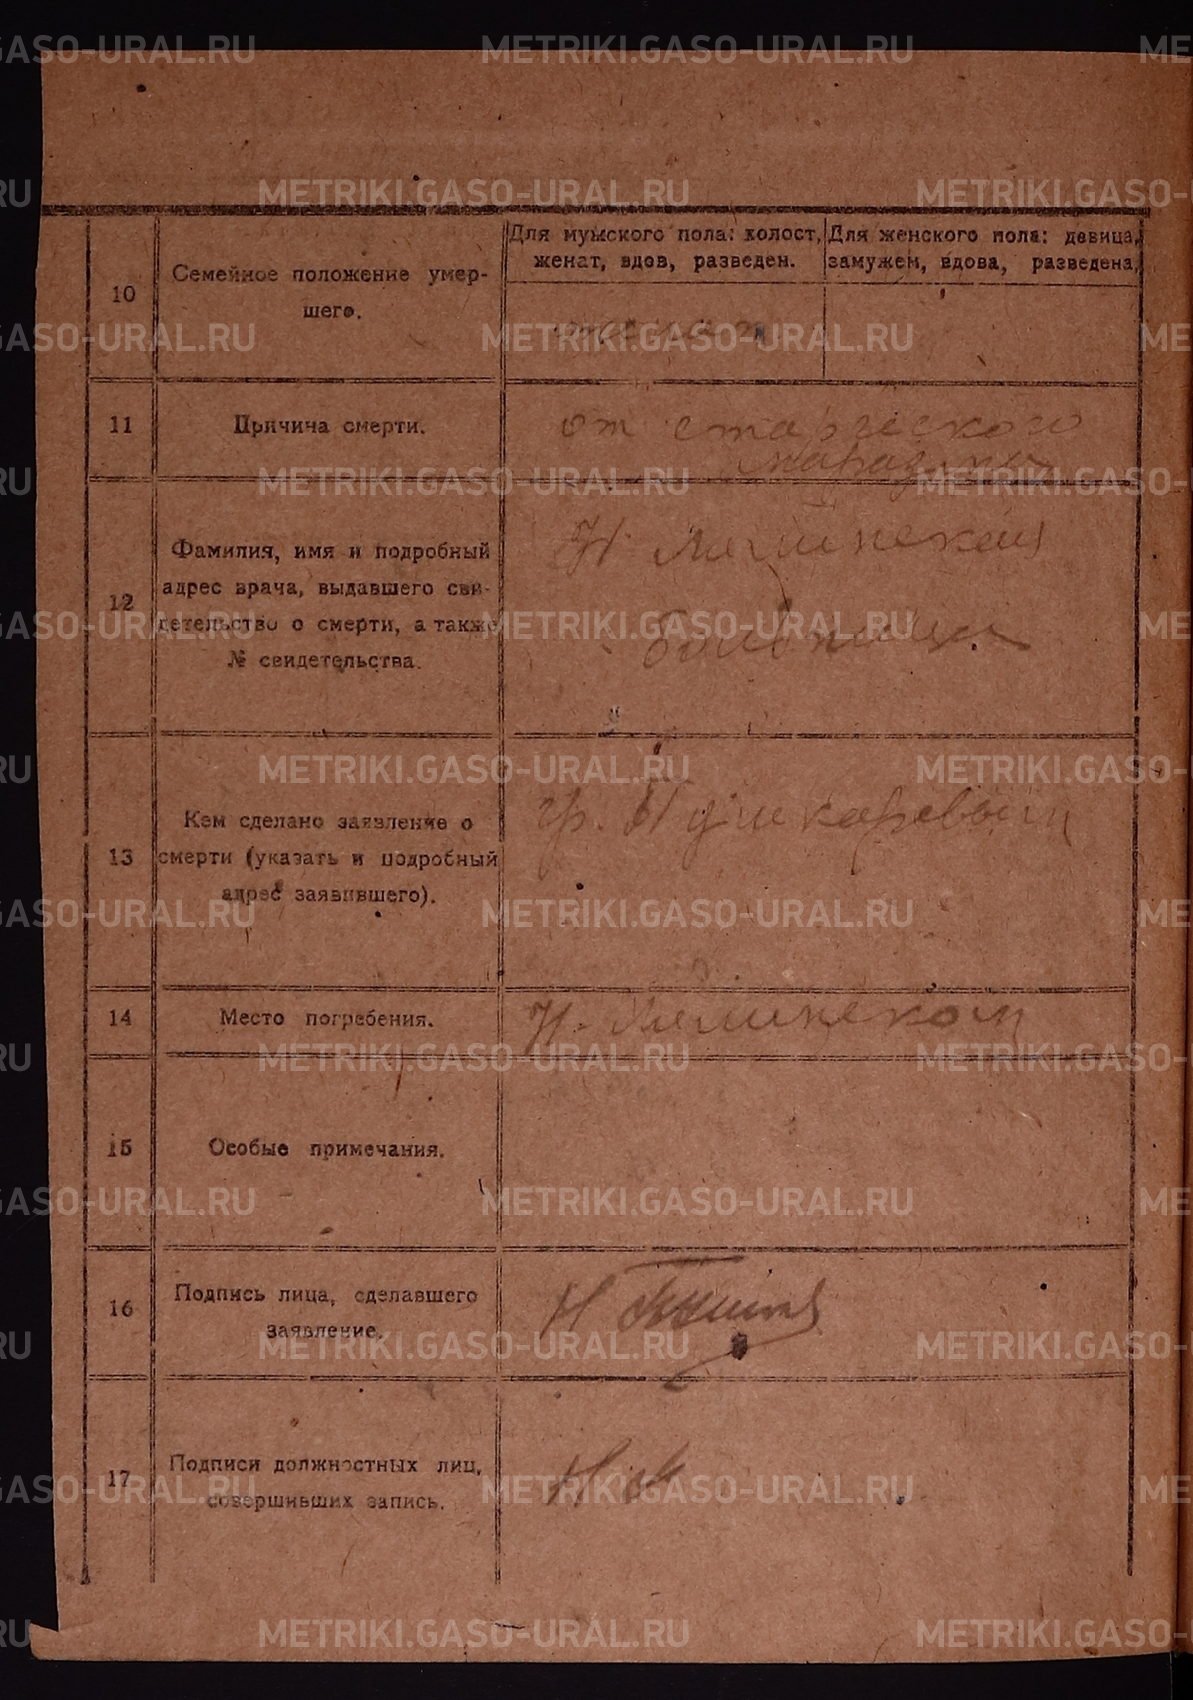 METRIKI.GASO-URAL.RU
Для мужского пола: холост,
женат, вдов, разведен.
Для женского пола: девица,
замужем, вдова, разведена,
10
Семейное положение умер-
шего.
женат
11
Причина смерти.
от старческого
маразма
12
Фамилия, имя и подробный
адрес врача, выдавшего сви-
детельство о смерти, а также
№ свидетельства.
Н
больница
13
Кем сделано заявление о
смерти (указать и подробный
адрес заявившего).
гр. Пушкаревым
14
Место погребения.
Н.
15
Особые примечания.
16
Подпись лица, сделавшего
заявление.
17
Подписи должностных лиц,
совершивших запись.